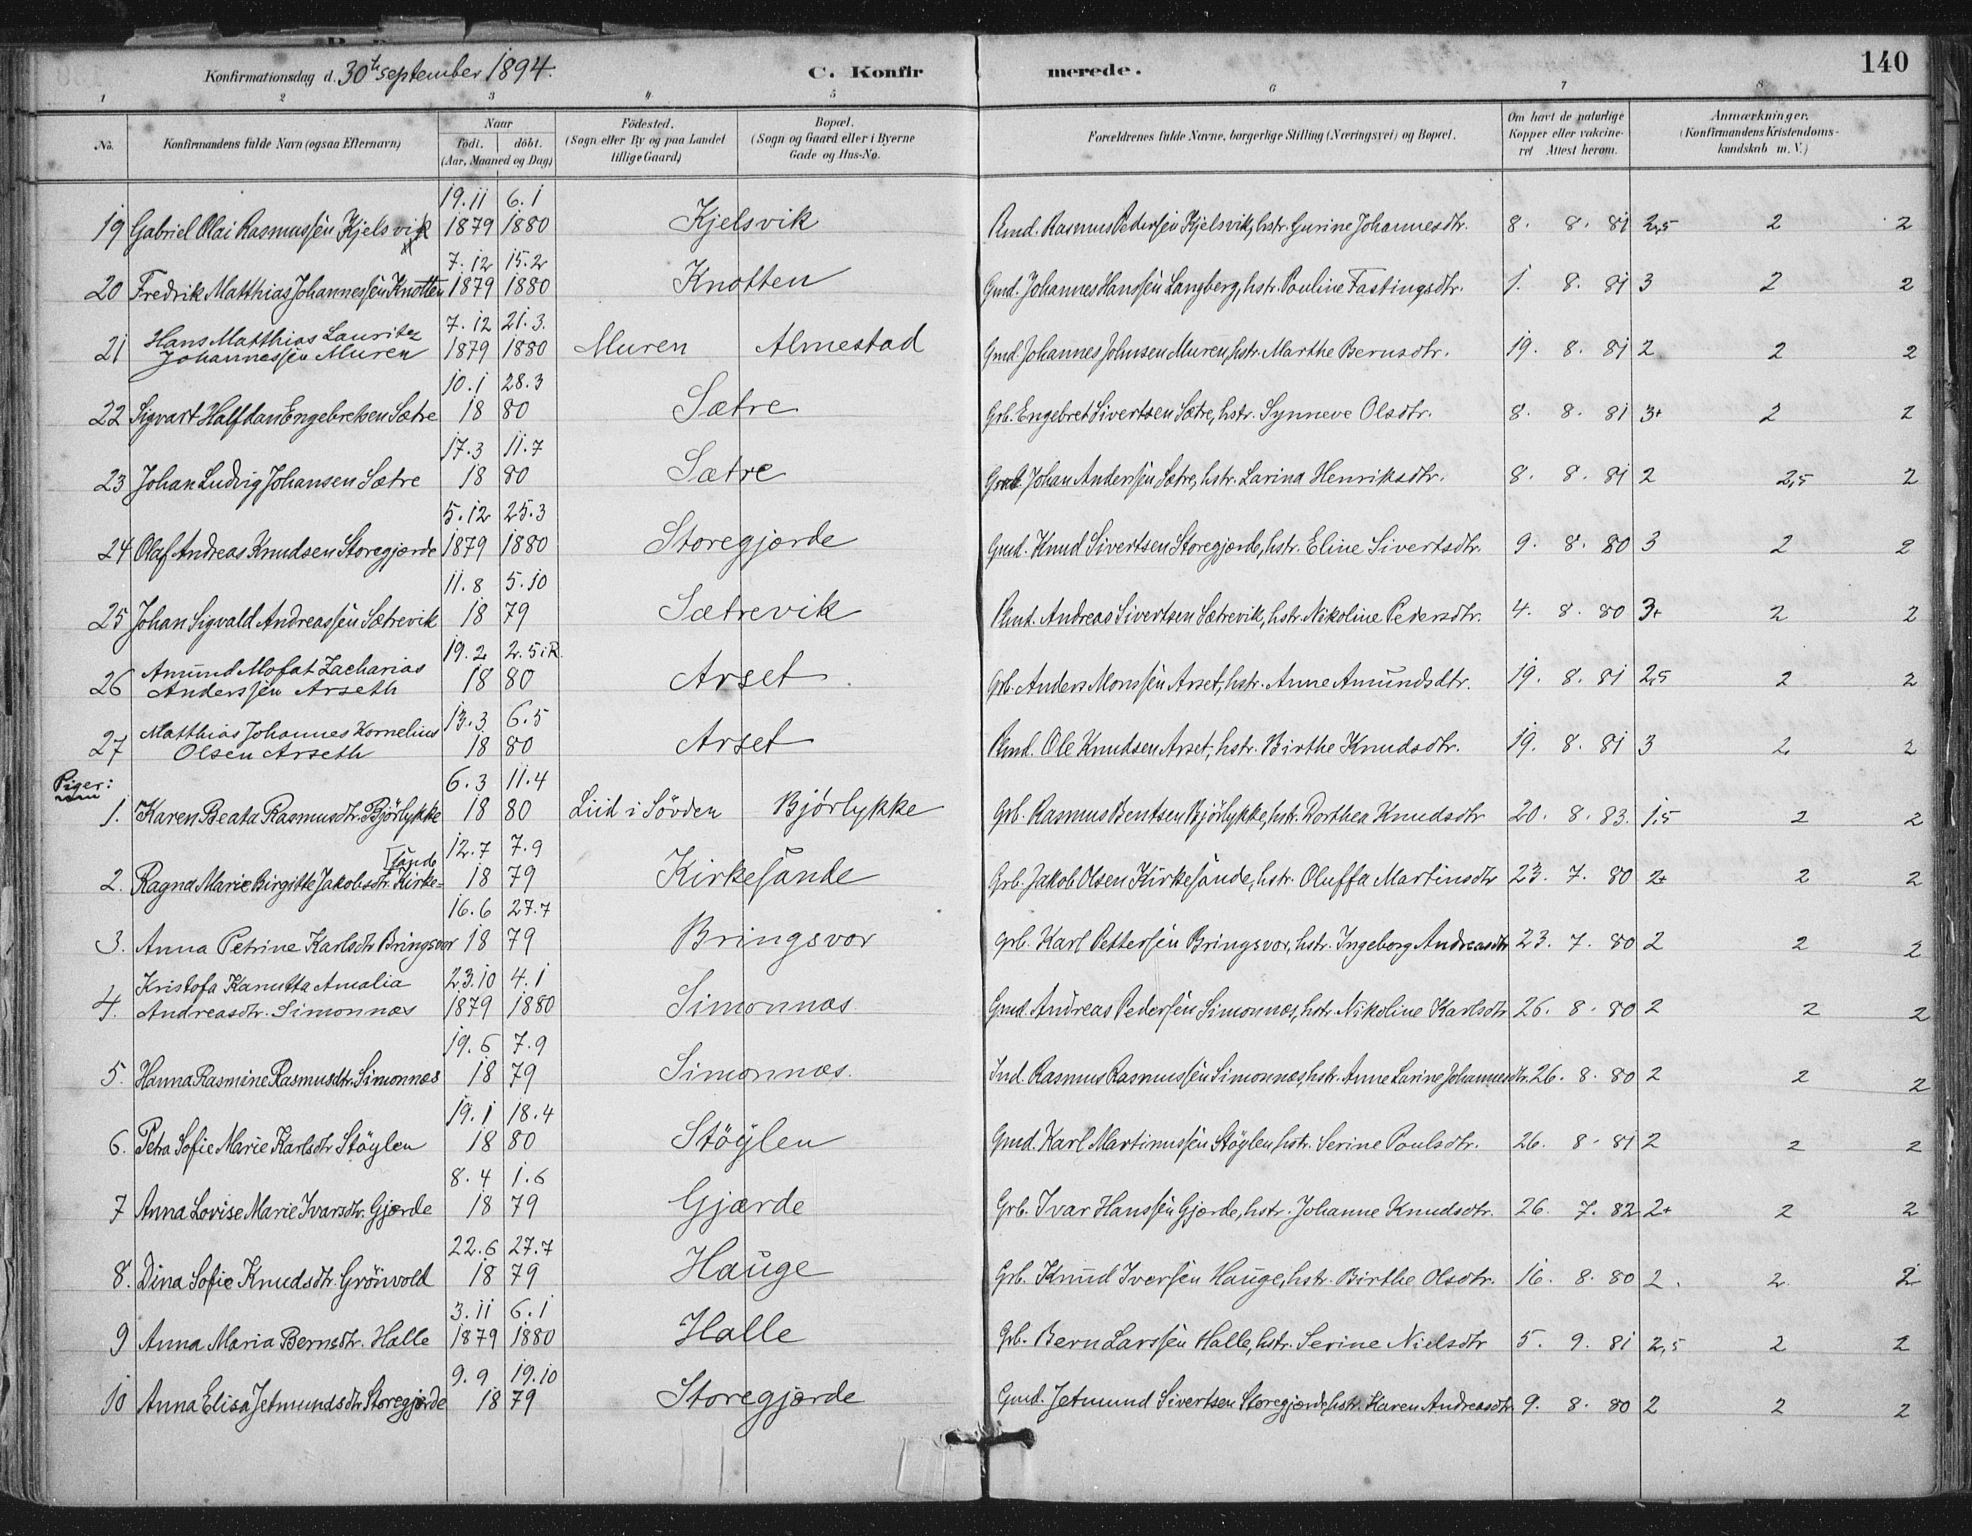 Konfirmationsdag d. 30te september 1894. C. Konfirmerede. 140
1 2 3 4 5 6 7 8
No. Konfirmandens fulde Navn (ogsaa Efternavn) Naar födt. döbt. (Aar, Maaned og Dag) Födested. (Sogn eller By og paa Landet tillige Gaard) Bopæl. (Sogn og Gaard eller i Byerne Gade og Hus-No. Forældrenes fulde Navne, borgerlige Stilling (Næringsvei) og Bopæl. Om havt de naturlige Kopper eller vakcineret Attest herom. Anmærkninger. (Konfirmandens Kristendomskundskab m. V.)
19.11 6.1
19 Gabriel Olai Rasmussen Kjelsvik 1879 1880 Kjelsvik Rmd. Rasmus Pedersen Kjelsvik, hstr. Gurine Johannesdtr. 8. 8. 81 2,5 2 2
7.12 15.2
20 Fredrik Matthias Johannessen Knotten 1879 1880 Knotten Gmd. Johannes Hanssen Langberg, hstr. Pauline Fastingsdtr. 1. 8. 81 3 2 2
7.12 21.3.
21 Hans Matthias Lauritz Johannessen Muren 1879 1880 Muren Almestad Gmd. Johannes Johnsen Muren, hstr. Marthe Bernsdtr. 19. 8. 81 2 2 2
10.1 28.3
22 Sigvart Halfdan Engebretsen Sætre 18 80 Sætre Grb. Engebret Sivertsen Sætre, hstr. Synneve Olsdtr. 8. 8. 81 3+ 2 2
17.3 11.7
23 Johan Ludvig Johansen Sætre 18 80 Sætre Johan Anderssen Sætre, hstr. Larina Henriksdtr. 8. 8. 81 2 2,5 2
5.12 25.3
24 Olaf Andreas Knudsen Storegjærde 1879 1880 Storegjærde Gmd. Knud Sivertsen Storegjærde, hstr. Eline Sivertsdtr. 9. 8. 80 3 2 2
11.8 5.10
25 Johan Sigvald Andreassen Sætrevik 18 79 Sætrevik Rmd. Andreas Sivertsen Sætrevik, hstr. Nikoline Pedersdtr. 4. 8. 80 3+ 2 2
19.2 2.5 i R.
26 Amund Mofat Zacharias Anderssen Arseth 18 80 Arset Grb. Anders Monssen Arset, hstr. Anne Amundsdtr. 19. 8. 81 2,5 2 2
13.3 6.5
27 Matthias Johannes Kornelius Olsen Arseth 18 80 Arset Rmd. Ole Knudsen Arset, hstr. Birthe Knudsdtr. 19. 8. 81 3 2 2
Piger: 6.3 11.4
1. Karen Beata Rasmusdtr. Bjørlykke 18 80 Liid i Sövden Bjørlykke Grb. Rasmus Bentsen Bjørlykke, hstr. Dorthea Knudsdtr 20. 8. 83. 1,5 2 2
12.7 7.9
2. Ragna Marie Birgitte Jakobsdtr. Kirke=sande 18 79 Kirkesande Grb. Jakob Olsen Kirkesande, hstr. Oluffa Martinsdtr 23. 7. 80 2+ 2 2
16.6 27.7
3. Anna Petrine Karlsdtr Bringsvor 18 79 Bringsvor Grb. Karl Pettersen Bringsvor, hstr. Ingeborg Andreasdtr 23. 7. 80 2 2 2
23.10 4.1
4. Kristofa Kanutta Amalia Andreasdtr. Simonnæs 1879 1880 Simonnæs Gmd. Andreas Pedersen Simonnæs, hstr. Nikoline Karlsdtr 26. 8. 80 2 2 2
19.6 7.9
5. Hanna Rasmine Rasmusdtr. Simonnæs 18 79 Simonnæs. Ind. Rasmus Rasmussen Simonnæs, hstr. Anne Larine Johannesdtr. 26. 8. 80 2 2 2
19.1 18.4
6. Petra Sofie Marie Karlsdtr Støylen 18 80 Støylen Gmd. Karl Martinussen Støylen, hstr. Serine Poulsdtr. 26. 8. 81 2 2 2
8.4 1.6
7 Anna Lovise Marie Ivarsdtr. Gjærde 18 79 Gjærde Grb. Ivar Hanssen Gjærde, hstr. Johanne Knudsdtr. 26. 7. 82 2+ 2 2
22.6 27.7
8. Dina Sofie Knudsdtr. Grönvold 18 79 Hauge Grb. Knud Iversen Hauge, hstr. Birthe Olsdtr. 16. 8. 80 2. 2 2
3.11 6.1
9 Anna Maria Bernsdtr. Halle 1879 1880 Halle Grb. Bern Larssen Halle, hstr. Serine Nielsdtr 5. 9. 81 2,5 2 2
9.9 19.10
10 Anna Elisa Jetmundsdtr Storegjærde 18 79 Storegjærde Gmd. Jetmund Sivertsen Storegjærde, hstr. Karen Andreasdtr. 9. 8. 80 2 2 2